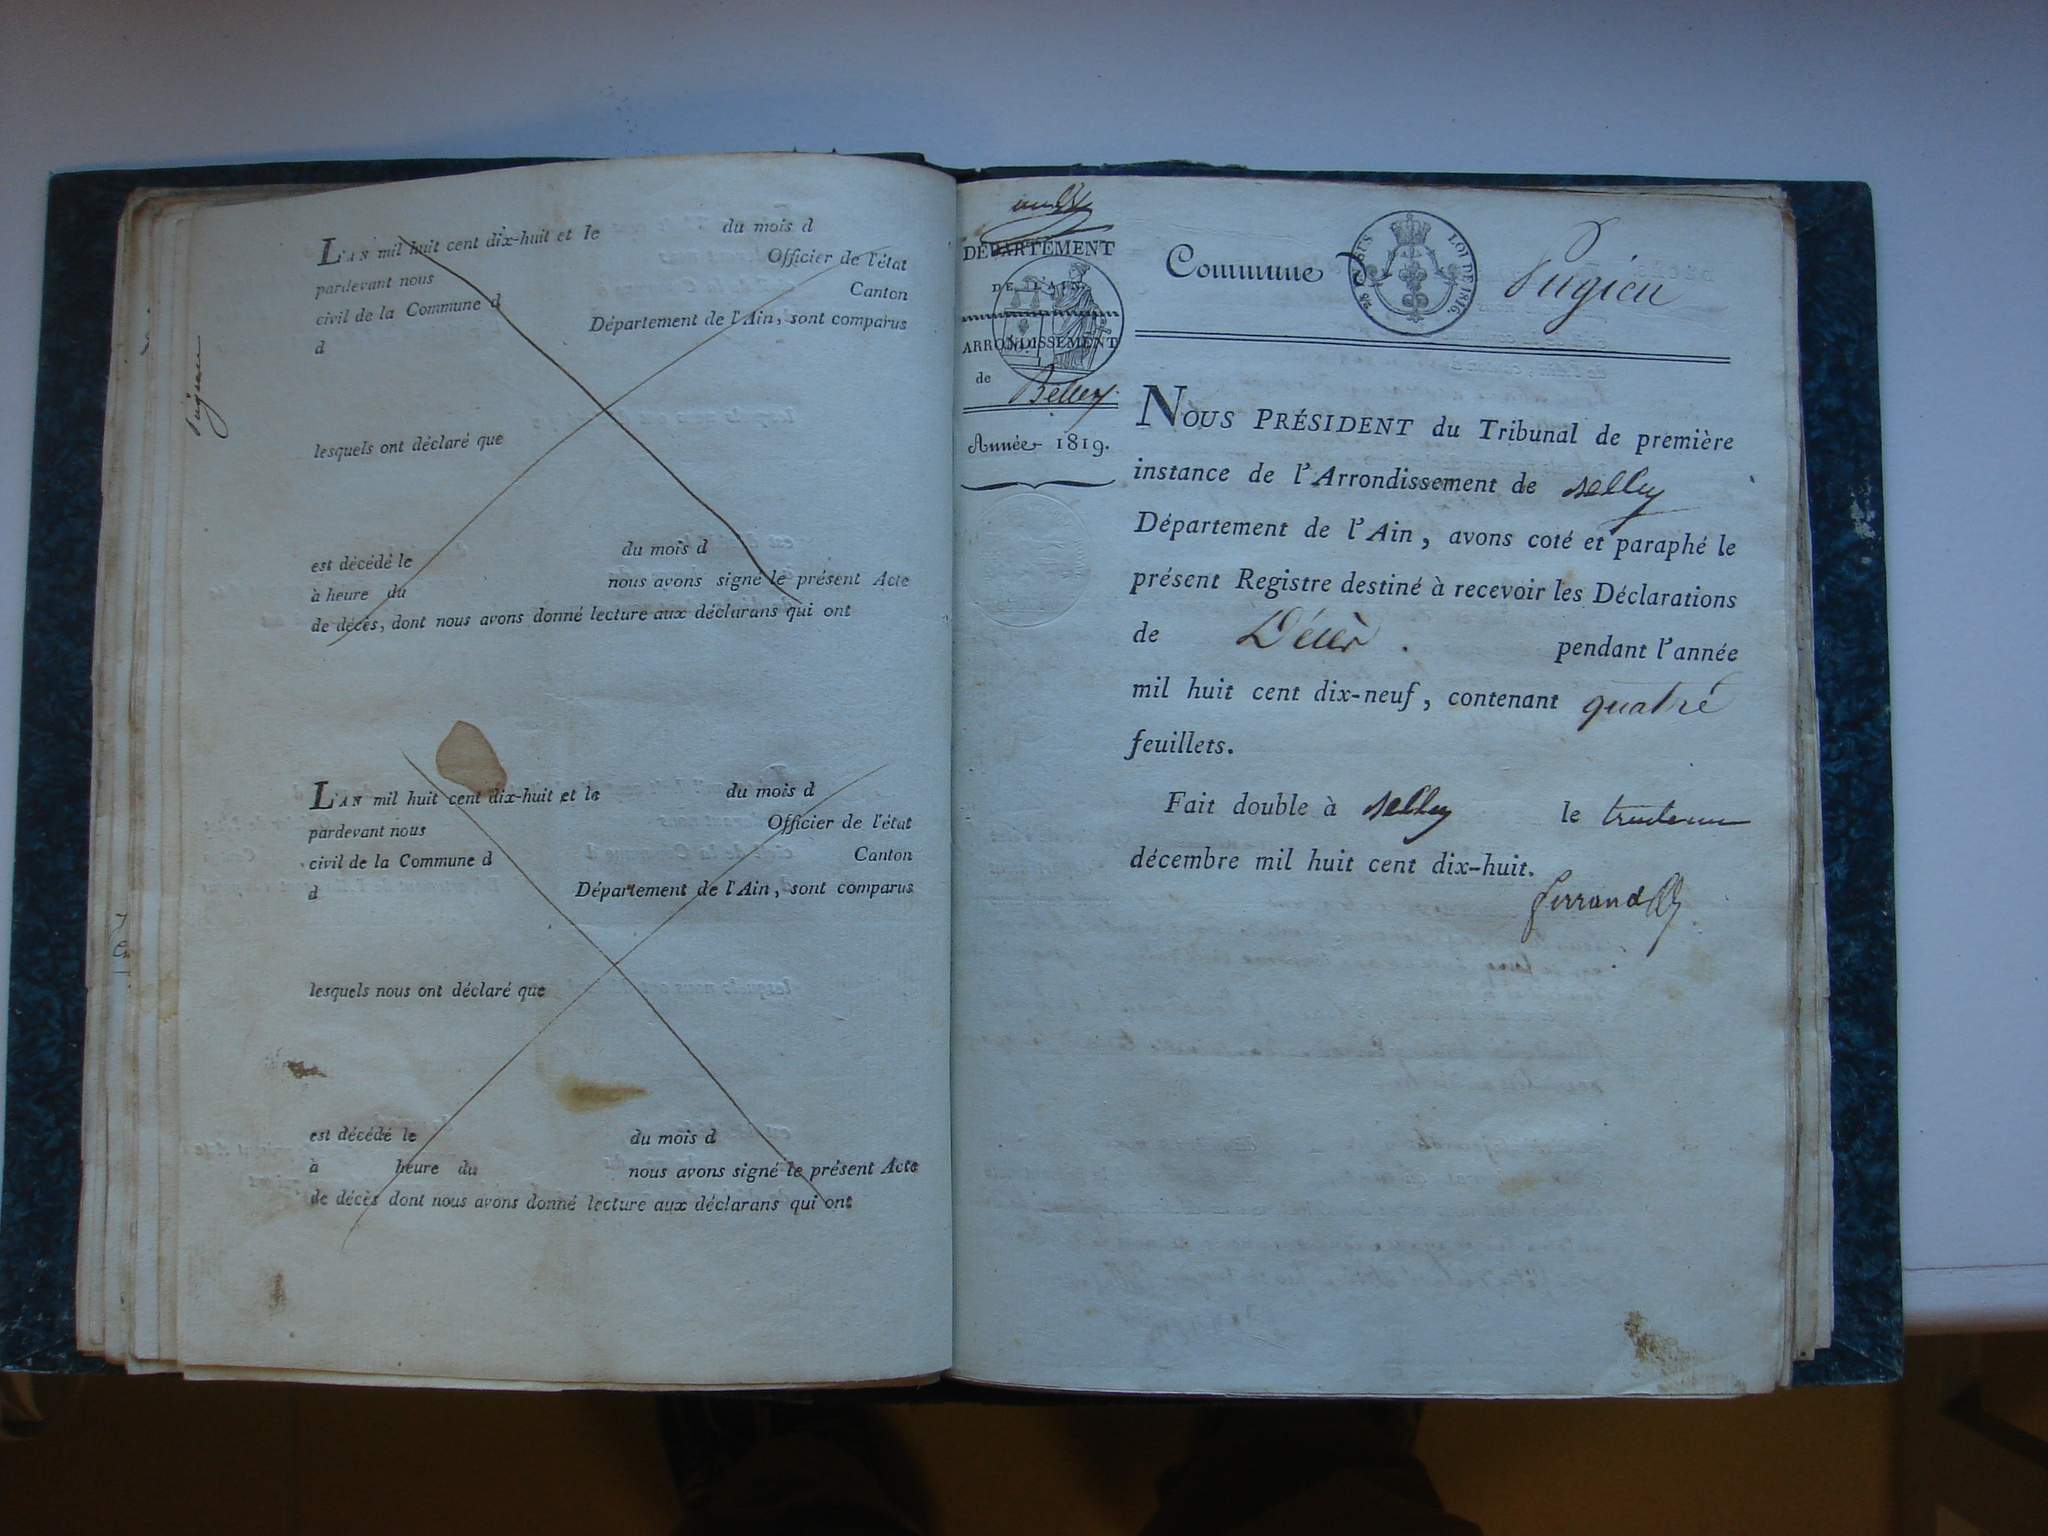 L'AN mil huit cent dix-huit et le du mois d
pardevant nous Officier de l'état
civil de la Commune d Canton
d Département de l'Ain, sont comparus
lesquels ont déclaré que
est décédé le du mois d
à heure du nous avons signé le présent Acte
de décès, dont nous avons donné lecture aux déclarans qui ont
L'AN mil huit cent dix-huit et le du mois d
pardevant nous Officier de l'état
civil de la Commune d Canton
d Département de l'Ain, sont comparus
lesquels nous ont déclaré que
est décédé le du mois d
à heure du nous avons signé le présent Acte
de décès dont nous avons donné lecture aux déclarans qui ont
Pugieu
DÉPARTEMENT
DE L'AIN
ARRONDISSEMENT
de Belley
Année 1819.
Commune de Pugieu
LOI DE 1816
NOUS PRÉSIDENT du Tribunal de première
instance de l'Arrondissement de Belley
Département de l'Ain, avons coté et paraphé le
présent Registre destiné à recevoir les Déclarations
de Décès. pendant l'année
mil huit cent dix-neuf, contenant quatre
feuillets.
Fait double à Belley le trente un
décembre mil huit cent dix-huit.
ferrand